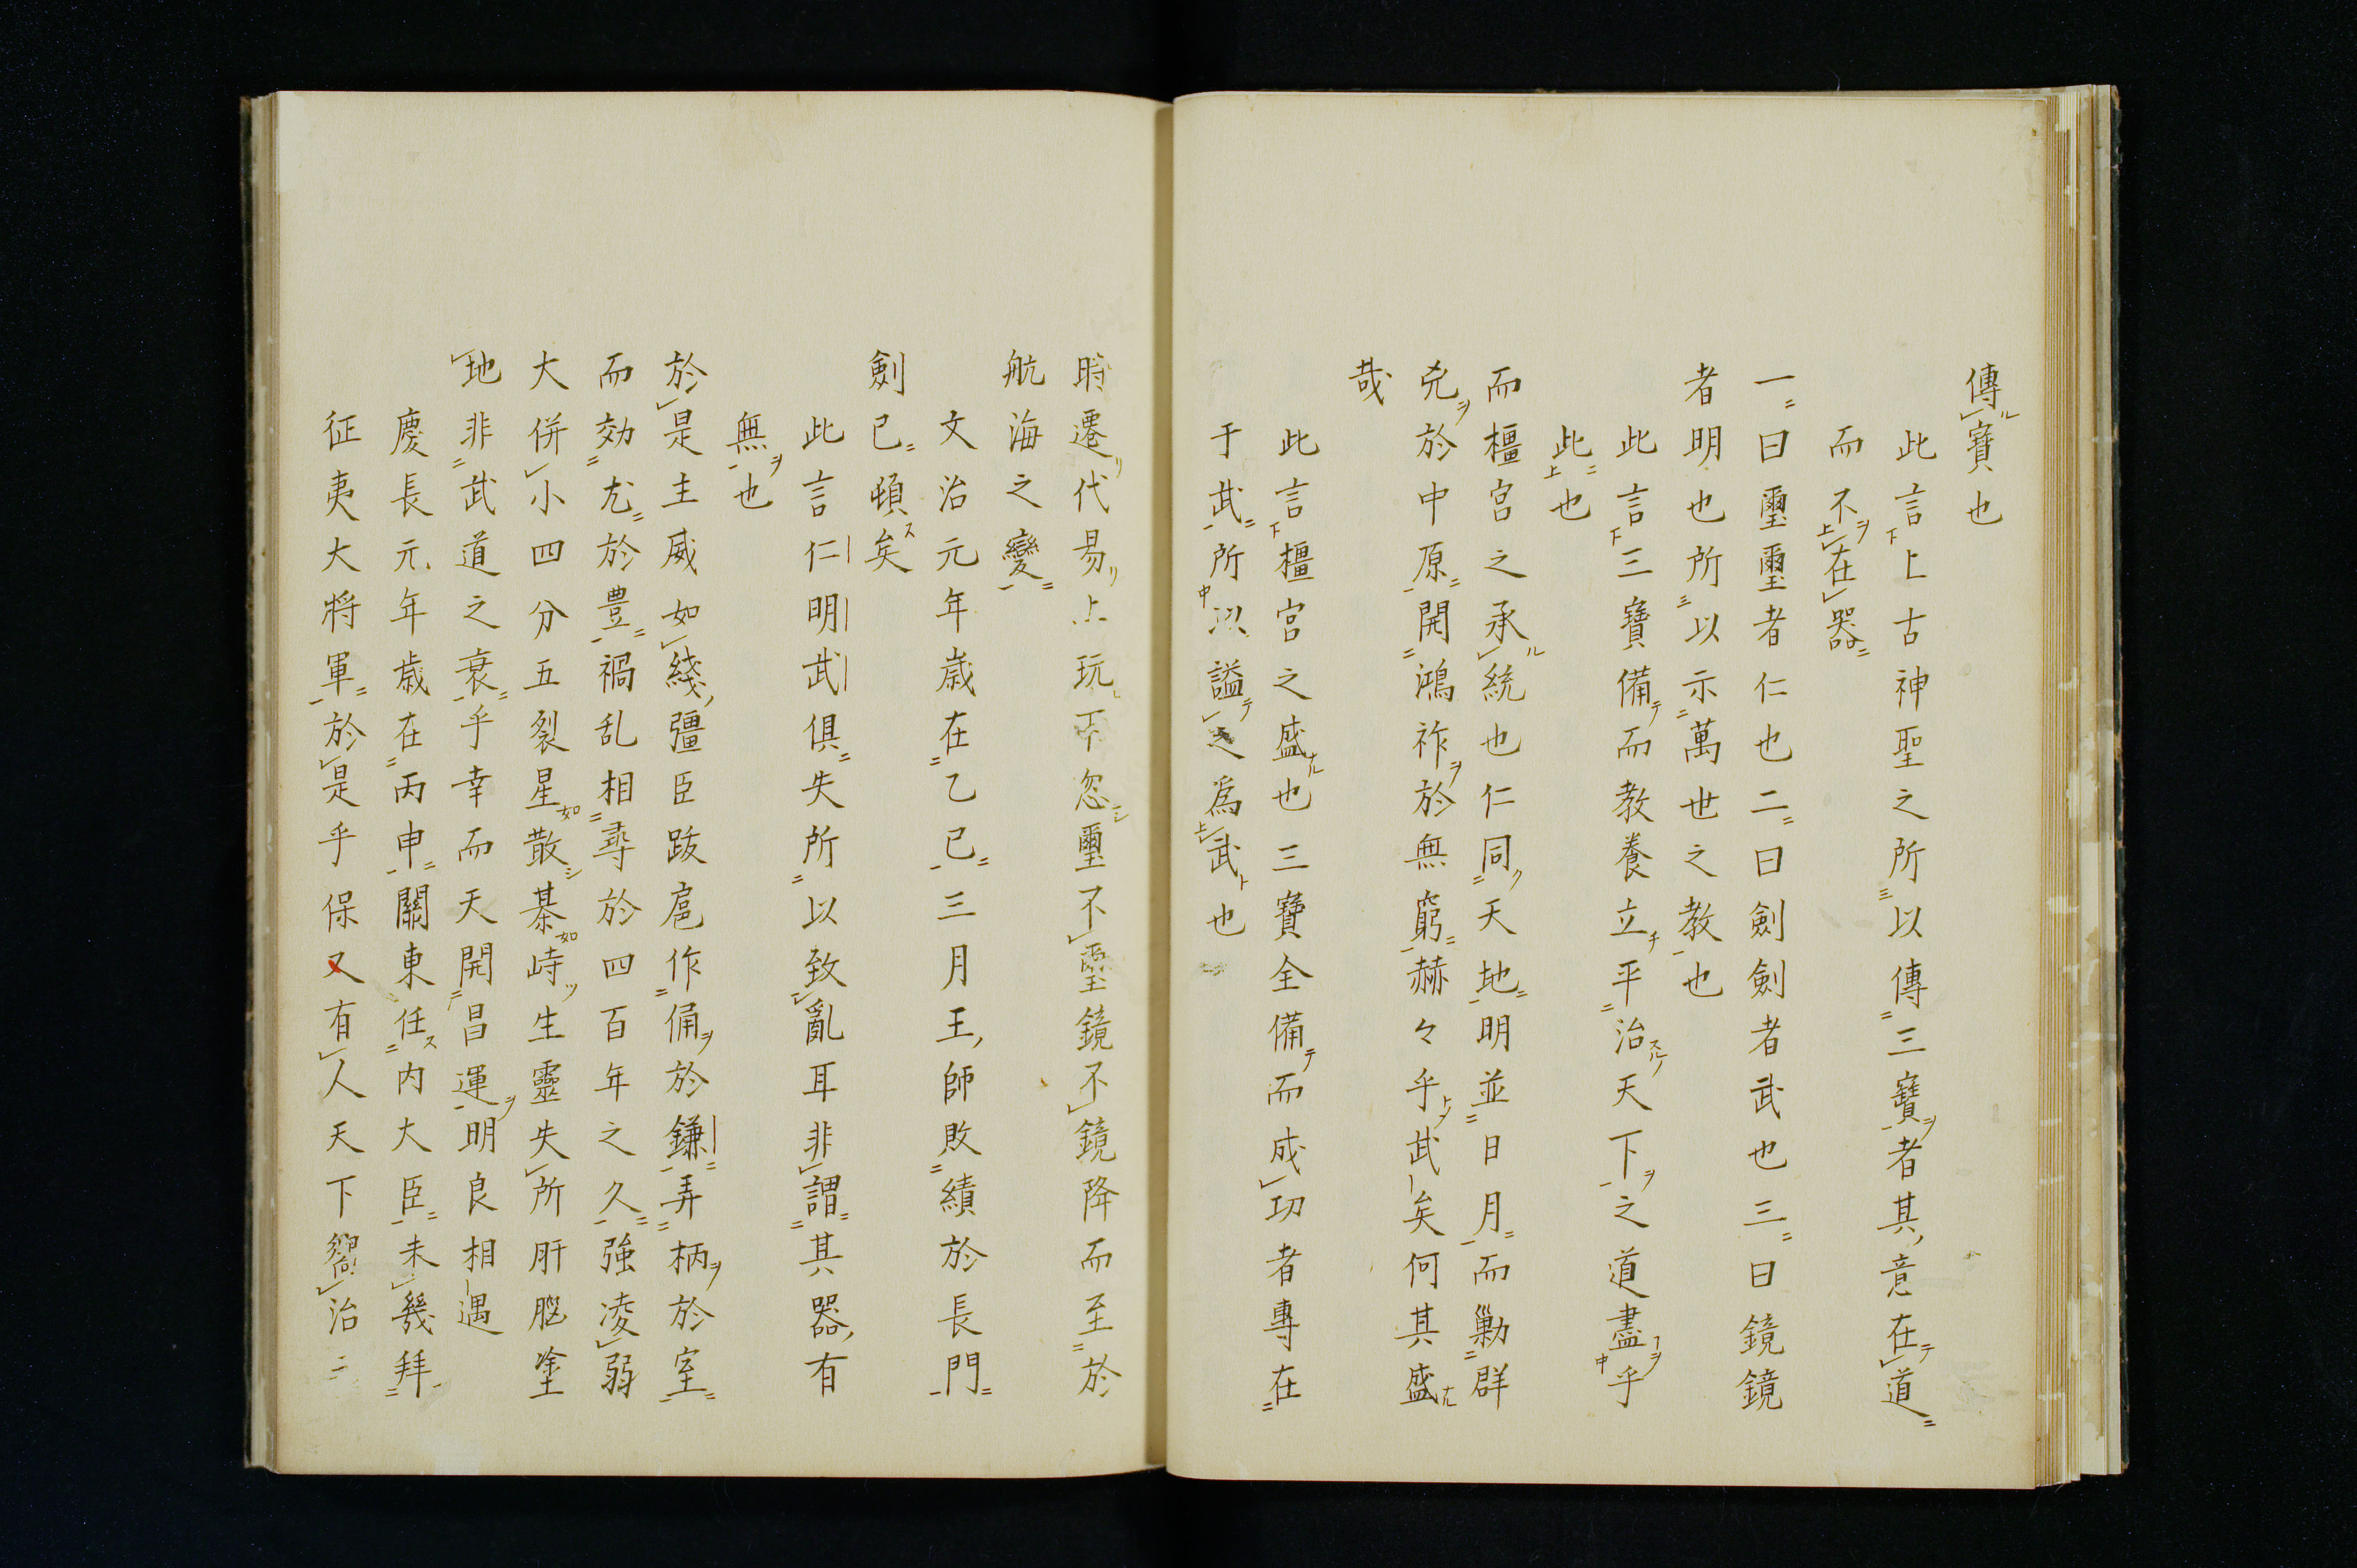 傳寶也
此言上古神聖之所以傳三寶者其意在道
而不在器
一曰璽璽者仁也二曰劍劍者武也三曰鏡鏡
者明也所以示萬世之教也
此言三寶備而教養立平治天下之道盡乎
此也
而橿宮之承統也仁同天地明並日月而勦群
兇於中原開鴻祚於無窮赫々乎武矣何其盛
哉
此言橿宮之盛也三寶全備而成功者專在
于武所以謚之為武也
時遷代易上玩下忽璽不璽鏡不鏡降而至於
航海之變
文治元年歳在乙巳三月王師敗績於長門
劍已頓矣
此言仁明武俱失所以致亂耳非謂其器有
無也
於是主威如綫彊臣跋扈作俑於鎌弄柄於室
而効尤於豊禍乱相尋於四百年之久強凌弱
大併小四分五裂星散棊峙生靈失所肝脳塗
地非武道之衰乎幸而天開昌運明良相遇
慶長元年歳在丙申關東任内大臣未幾拜
征夷大将軍於是乎保又有人天下嚮治